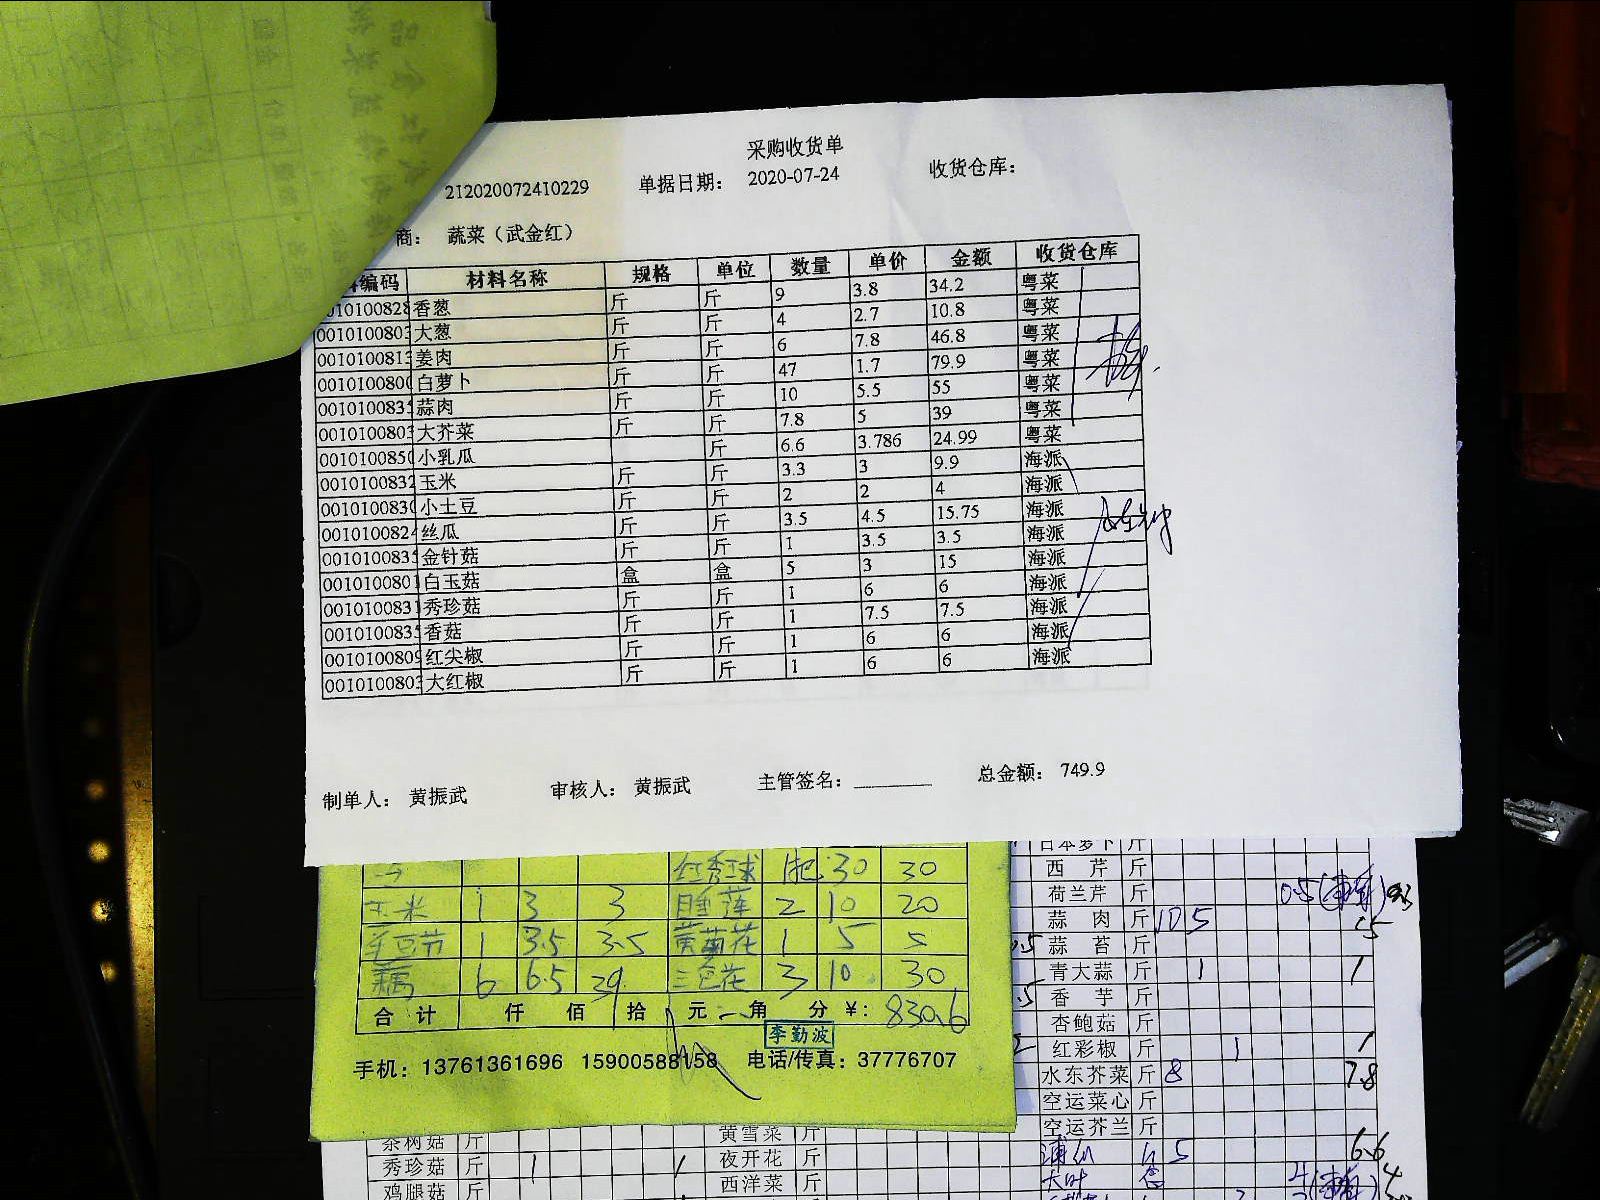 采购收货单
212020072410229 单据日期: 2020-07-24 收货仓库:
商: 蔬菜（武金红）
编码 材料名称 规格 单位 数量 单价 金额 收货仓库
0010100828 香葱 斤 斤 9 3.8 34.2 粤菜
0010100803 大葱 斤 斤 4 2.7 10.8 粤菜
0010100813 姜肉 斤 斤 6 7.8 46.8 粤菜
0010100800 白萝卜 斤 斤 47 1.7 79.9 粤菜
0010100835 蒜肉 斤 斤 10 5.5 55 粤菜
0010100803 大芥菜 斤 斤 7.8 5 39 粤菜
0010100850 小乳瓜 斤 6.6 3.786 24.99 粤菜
0010100832 玉米 斤 斤 3.3 3 9.9 海派
0010100830 小土豆 斤 斤 2 2 4 海派
0010100824 丝瓜 斤 斤 3.5 4.5 15.75 海派
0010100835 金针菇 斤 斤 1 3.5 3.5 海派
0010100801 白玉菇 盒 盒 5 3 15 海派
0010100831 秀珍菇 斤 斤 1 6 6 海派
0010100835 香菇 斤 斤 1 7.5 7.5 海派
0010100809 红尖椒 斤 斤 1 6 6 海派
0010100803 大红椒 斤 斤 1 6 6 海派
制单人: 黄振武 审核人: 黄振武 主管签名: 总金额: 749.9
红秀球 1把 30 30
玉米 1 3 3 睡莲 2 10 20
1 3.5 3.5 黄菊花 1 5 5
藕 6 6.5 39 三色花 3 10 30
合计 仟 佰 拾 元 角 分 ¥: 830.6
李勤波
手机: 13761361696 15900588158 电话/传真: 37776707
日本萝卜 斤
西芹 斤
荷兰芹 斤 0.5
蒜肉 斤 10.5
蒜苔 斤
青大蒜 斤 1 1
香芋 斤
杏鲍菇 斤
红彩椒 斤 1 1
水东芥菜 斤 8 7.8
空运菜心 斤
空运芥兰 斤
茶树菇 斤 黄雪菜 斤
秀珍菇 斤 1 1 夜开花 斤 5 6.6
鸡腿菇 斤 西洋菜 斤